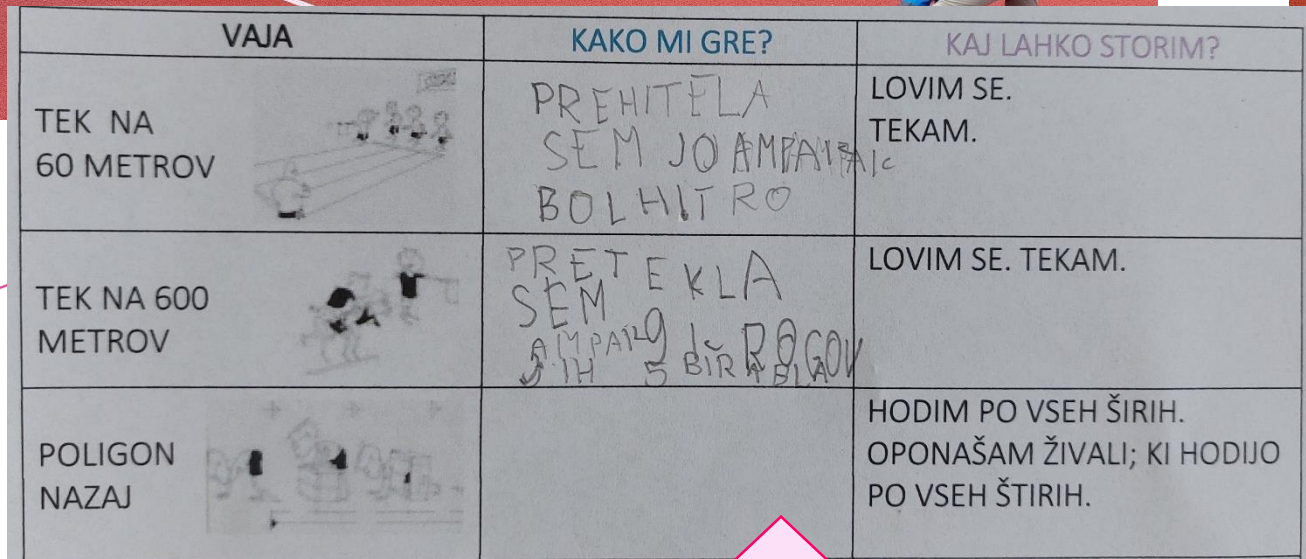 VAJA
KAKO MI GRE?
KAJ LAHKO STORIM?
TEK NA
60 METROV
PREHITELA
SEM JO AMPAK
BOLHITRO
LOVIM SE.
TEKAM.
TEK NA 600
METROV
PRETEKLA
SEM
AMPAK KROGOV
JIH 5
LOVIM SE. TEKAM.
POLIGON
NAZAJ
HODIM PO VSEH ŠIRIH.
OPONAŠAM ŽIVALI; KI HODIJO
PO VSEH ŠTIRIH.